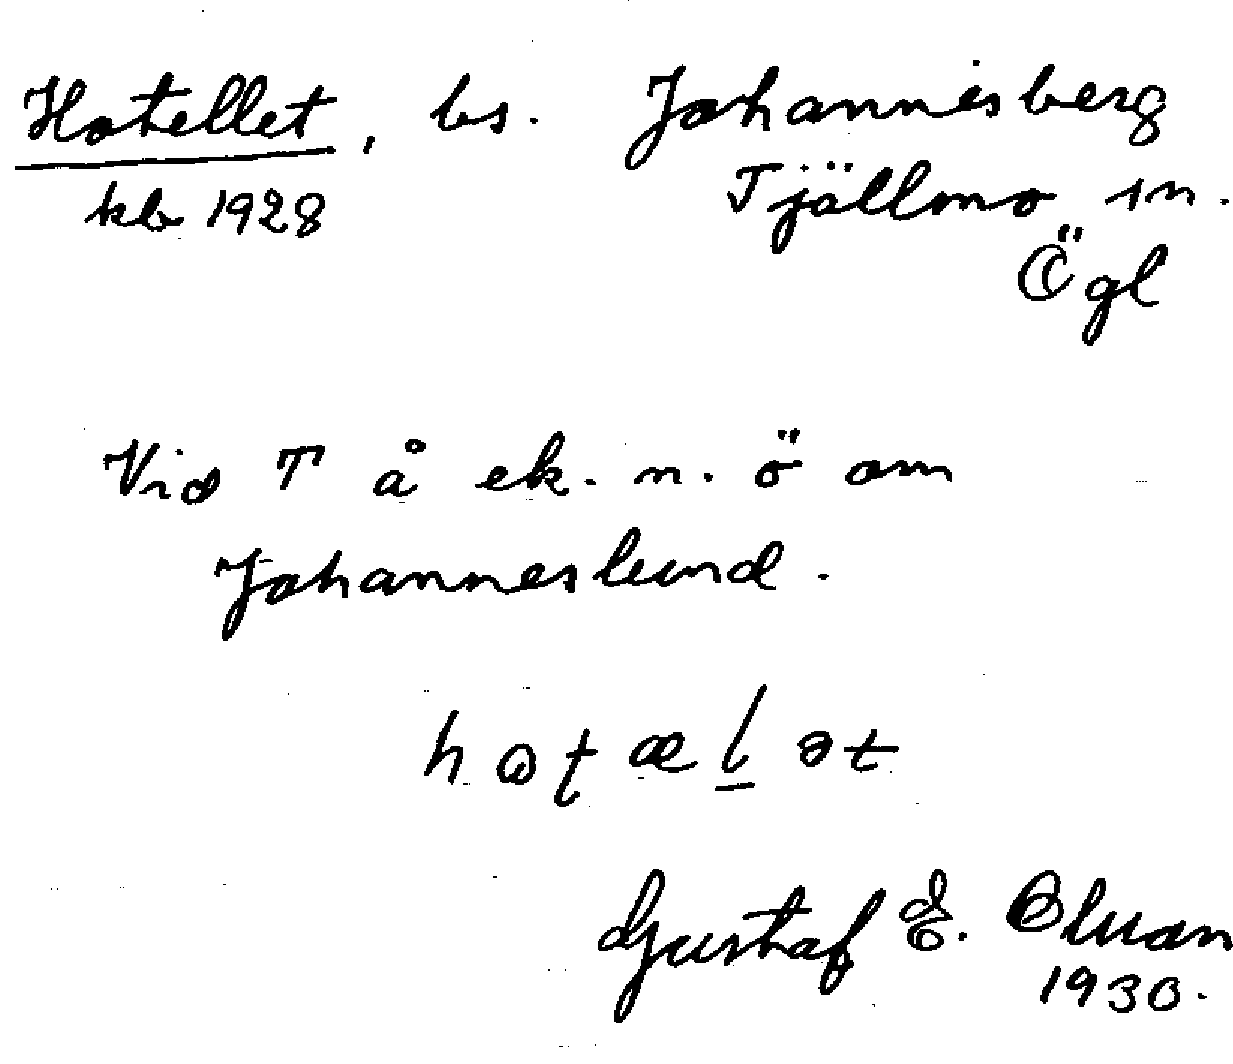 Hotellet, bs. Johannesberg
kb 1928 Tjällmo sn.
Ögl
Vid T å ek. n. ö om
Johanneslund.
Gustaf E.
1930.